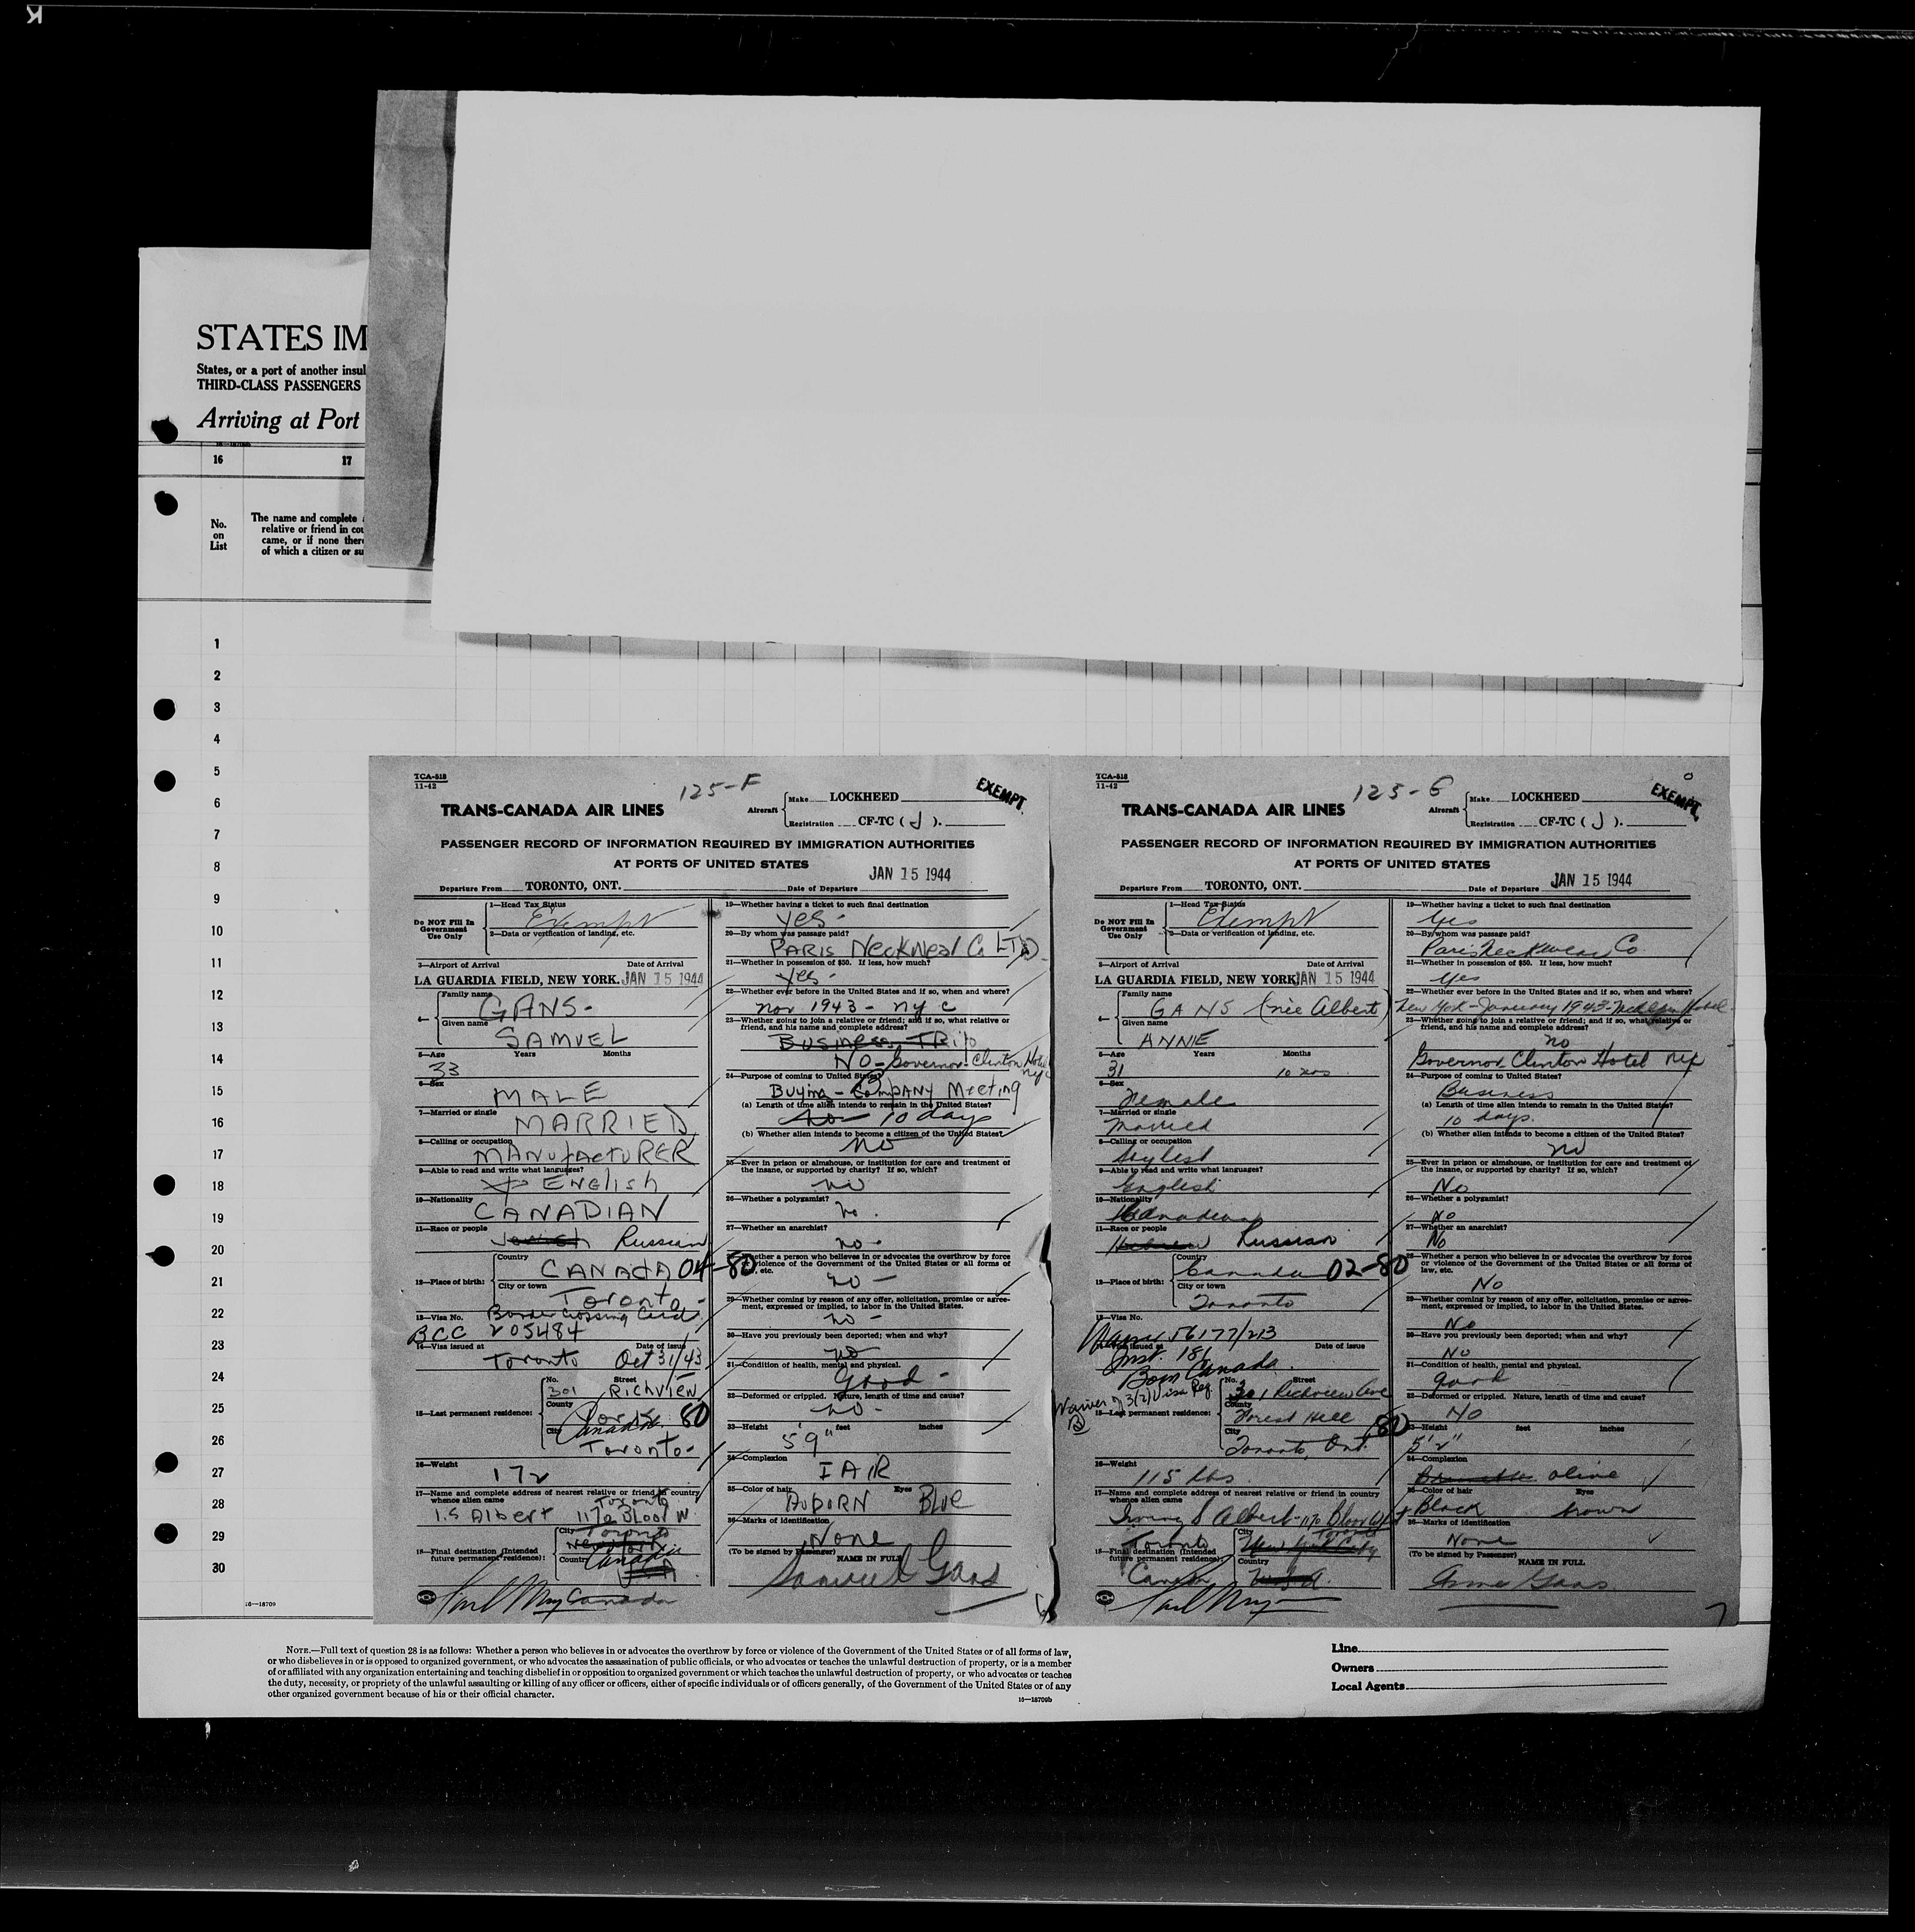 STATES IM
States, or a port of another insul
THIRD-CLASS PASSENGERS
Arriving at Port
16 17
No. on List
The name and complete
relative or friend in cou
came, or if none there
of which a citizen or su
1
2
3
4
5
6
7
8
9
10
11
12
13
14
15
16
17
18
19
20
21
22
23
24
25
26
27
28
29
30
16—18709
TCA-518
11-42
125-F
EXEMPT
TRANS-CANADA AIR LINES
Aircraft
Make LOCKHEED
Registration CF-TC ( J ).
PASSENGER RECORD OF INFORMATION REQUIRED BY IMMIGRATION AUTHORITIES
AT PORTS OF UNITED STATES
Departure From TORONTO, ONT. Date of Departure JAN 15 1944
Do NOT Fill In
Government
Use Only
1—Head Tax Status
Exempt
2—Data or verification of landing, etc.
3—Airport of Arrival Date of Arrival
LA GUARDIA FIELD, NEW YORK. JAN 15 1944
4—
Family name
GANS-
Given name
SAMUEL
5—Age Years Months
33
6—Sex
MALE
7—Married or single
MARRIED
8—Calling or occupation
MANUfActURER
9—Able to read and write what languages?
ENGlish
10—Nationality
CANADIAN
11—Race or people
Jewish Russian
12—Place of birth:
Country
CANAdA 04-80
City or town
Toronto-
13—Visa No. Border Crossing Card
BCC 205484
14—Visa issued at Date of issue
Toronto Oct 31/43
15—Last permanent residence:
No. Street
301 Richview
County
York 80
City
Canada
Toronto-
16—Weight
172
17—Name and complete address of nearest relative or friend in country
whence alien came
Toronto
I.S Albert 1170 Bloor W
18—Final destination (Intended
future permanent residence):
City Toronto
New York
Country Canada
USA
Canada
19—Whether having a ticket to such final destination
yes-
20—By whom was passage paid?
PARIS NeckWear Co LTD
21—Whether in possession of $50. If less, how much?
yes-
22—Whether ever before in the United States and if so, when and where?
Nov 1943 - NYC
23—Whether going to join a relative or friend; and if so, what relative or
friend, and his name and complete address?
Business TRip
NO-Governor Clinton Hotel
NYC
24—Purpose of coming to United States?
Buying - CompANY Meeting
(a) Length of time alien intends to remain in the United States?
10 days
(b) Whether alien intends to become a citizen of the United States?
NO
25—Ever in prison or almshouse, or institution for care and treatment of
the insane, or supported by charity? If so, which?
no
26—Whether a polygamist?
no.
27—Whether an anarchist?
no-
28—Whether a person who believes in or advocates the overthrow by force
or violence of the Government of the United States or all forms of
law, etc.
no-
29—Whether coming by reason of any offer, solicitation, promise or agree-
ment, expressed or implied, to labor in the United States.
no-
30—Have you previously been deported; when and why?
no
31—Condition of health, mental and physical.
Good-
32—Deformed or crippled. Nature, length of time and cause?
no-
33—Height feet inches
5 9"
34—Complexion
FAIR
35—Color of hair Eyes
AUbURN Blue
36—Marks of identification
None
(To be signed by Passenger) NAME IN FULL
Samuel Gans
TCA-518
11-42
125-G
EXEMPT
TRANS-CANADA AIR LINES
Aircraft
Make LOCKHEED
Registration CF-TC ( J ).
PASSENGER RECORD OF INFORMATION REQUIRED BY IMMIGRATION AUTHORITIES
AT PORTS OF UNITED STATES
Departure From TORONTO, ONT. Date of Departure JAN 15 1944
Do NOT Fill In
Government
Use Only
1—Head Tax Status
Exempt
2—Data or verification of landing, etc.
3—Airport of Arrival Date of Arrival
LA GUARDIA FIELD, NEW YORK. JAN 15 1944
4—
Family name
GANS (née Albert)
Given name
ANNIE
5—Age Years Months
31 10 mos
6—Sex
Female
7—Married or single
Married
8—Calling or occupation
Stylest
9—Able to read and write what languages?
English
10—Nationality
Canadian
11—Race or people
Hebrew Russian
12—Place of birth:
Country
Canada 02-80
City or town
Toronto
13—Visa No.
Waiver 56177/213
14—Visa issued at Date of issue
Inst. 181
Born Canada.
Waiver of 3(2) Visa Reg.
15—Last permanent residence:
No. Street
301 Richview Ave
County
Forest Hill 80
City
Toronto, Ont.
16—Weight
115 lbs.
17—Name and complete address of nearest relative or friend in country
whence alien came
Irving S Albert-1170 Bloor W
Toronto
18—Final destination (Intended
future permanent residence):
Toronto
Canada
City New York City
Country U.S.A.
19—Whether having a ticket to such final destination
Yes
20—By whom was passage paid?
Paris Neckwear Co
21—Whether in possession of $50. If less, how much?
Yes
22—Whether ever before in the United States and if so, when and where?
New York-January 1943-McAlpin Hotel
23—Whether going to join a relative or friend; and if so, what relative or
friend, and his name and complete address?
no
Governor Clinton Hotel NYC
24—Purpose of coming to United States?
Business
(a) Length of time alien intends to remain in the United States?
10 days.
(b) Whether alien intends to become a citizen of the United States?
No
25—Ever in prison or almshouse, or institution for care and treatment of
the insane, or supported by charity? If so, which?
No
26—Whether a polygamist?
No
27—Whether an anarchist?
No
28—Whether a person who believes in or advocates the overthrow by force
or violence of the Government of the United States or all forms of
law, etc.
No
29—Whether coming by reason of any offer, solicitation, promise or agree-
ment, expressed or implied, to labor in the United States.
No
30—Have you previously been deported; when and why?
No
31—Condition of health, mental and physical.
good
32—Deformed or crippled. Nature, length of time and cause?
No
33—Height feet inches
5'2"
34—Complexion
Brunette olive
35—Color of hair Eyes
Black brown
36—Marks of identification
None
(To be signed by Passenger) NAME IN FULL
Anne Gans
NOTE.—Full text of question 28 is as follows: Whether a person who believes in or advocates the overthrow by force or violence of the Government of the United States or of all forms of law,
or who disbelieves in or is opposed to organized government, or who advocates the assassination of public officials, or who advocates or teaches the unlawful destruction of property, or is a member
of or affiliated with any organization entertaining and teaching disbelief in or opposition to organized government or which teaches the unlawful destruction of property, or who advocates or teaches
the duty, necessity, or propriety of the unlawful assaulting or killing of any officer or officers, either of specific individuals or of officers generally, of the Government of the United States or of any
other organized government because of his or their official character.
16—18709b
Line
Owners
Local Agents